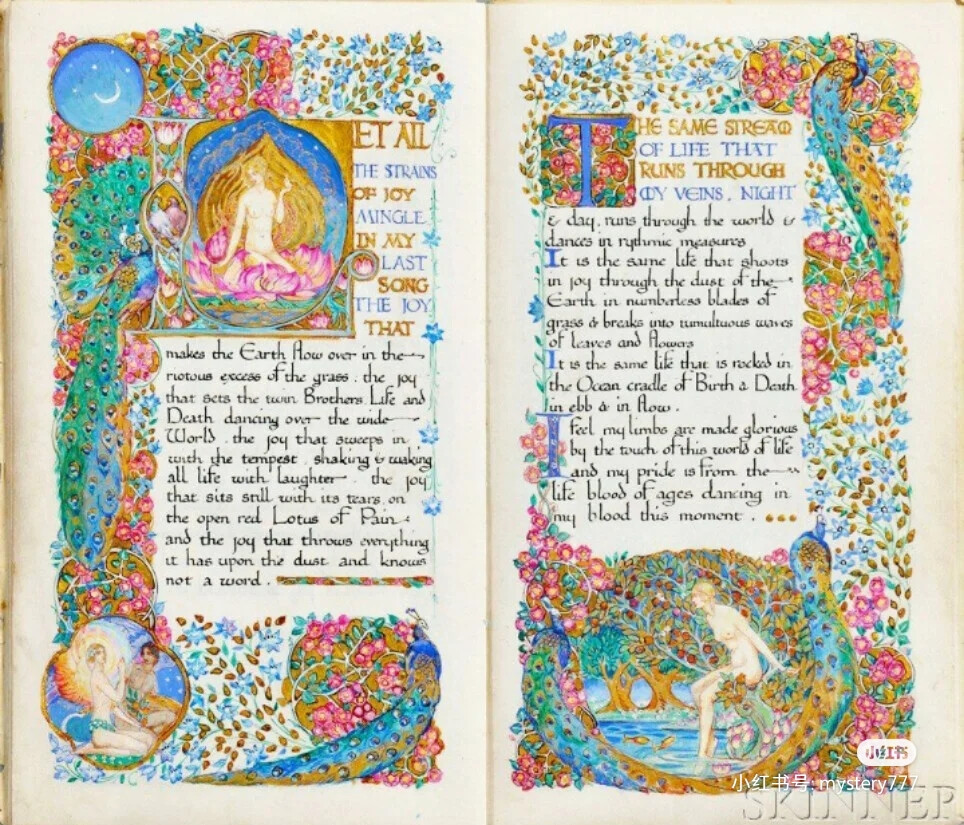 LET ALL
THE STRAINS
OF JOY
MINGLE
IN MY
LAST
SONG
THE JOY
THAT
makes the Earth flow over in the
riotous excess of the grass . the joy
that sets the twin Brothers Life and
Death dancing over the wide
World . the joy that sweeps in
with the tempest . shaking & waking
all life with laughter . the joy
that sits still with its tears on
the open red Lotus of Pain
and the joy that throws everything
it has upon the dust and knows
not a word .
THE SAME STREAM
OF LIFE THAT
RUNS THROUGH
MY VEINS . NIGHT
& day . runs through the world &
dances in rythmic measures
It is the same life that shoots
in joy through the dust of the
Earth in numberless blades of
grass & breaks into tumultuous waves
of leaves and flowers
It is the same life that is rocked in
the Ocean cradle of Birth & Death
in ebb & in flow .
I feel my limbs are made glorious
by the touch of this world of life
and my pride is from the
life blood of ages dancing in
my blood this moment . . . .
小红书
小红书号: mystery777
SKINNER